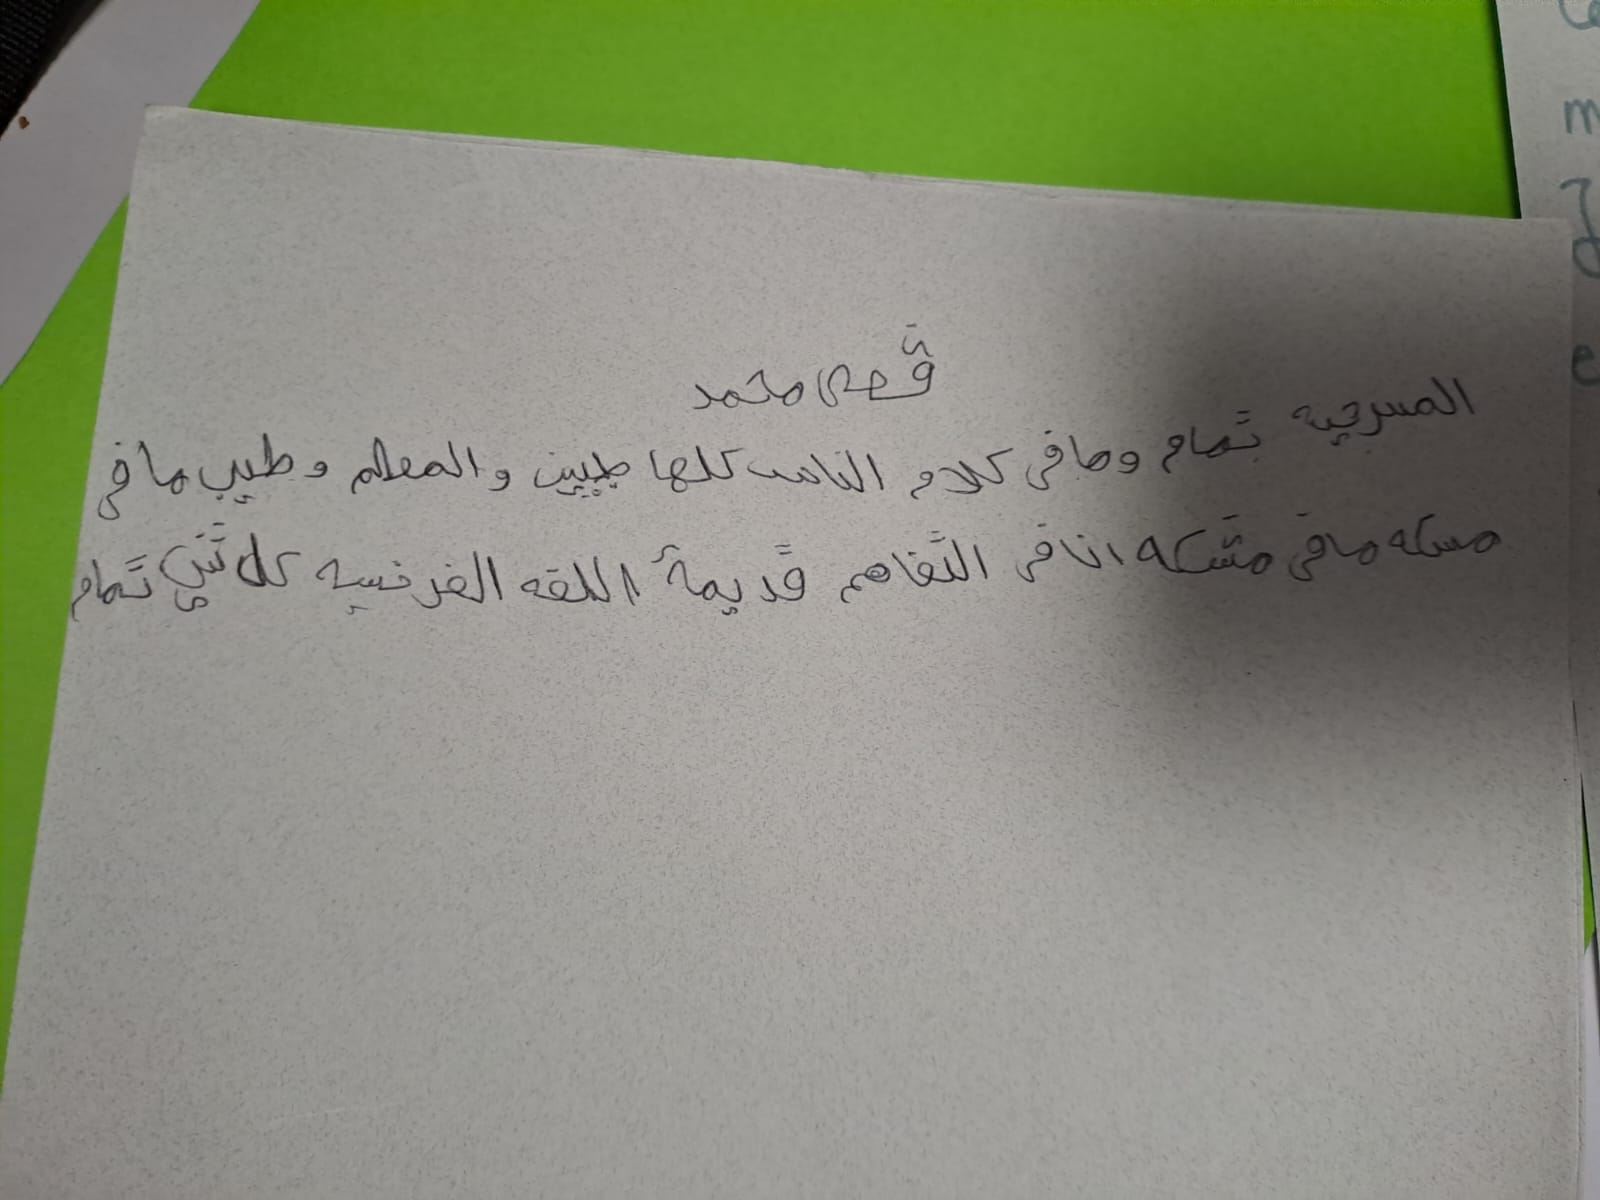 قصى محمد
المسرحيه تمام وما في كلام الناس كلها طيبين والمعلم وطيب ما في
مسكله مافي مشكله انا في التفاهم قديمة اللقه الفرنسيه كل شي تمام